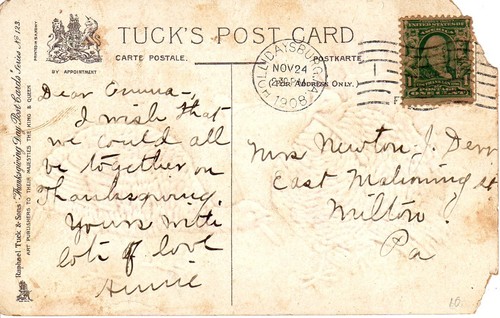 TUCK'S POST CARD
CARTE POSTALE.
POSTKARTE.
(FOR ADDRESS ONLY.)
BY APPOINTMENT
Raphael Tuck & Sons' "Thanksgiving Day Post Cards" Series No 123.
ART PUBLISHERS TO THEIR MAJESTIES THE KING & QUEEN
HOLLIDAYSBURG, PA
NOV 24
1908
Dear Emma -,
I wish that
we could all
be together on
Thanksgiving.
Yours with
lots of love
Annie
Mrs Newton J. Derr
East Mahoning st
Milton
Pa
10.